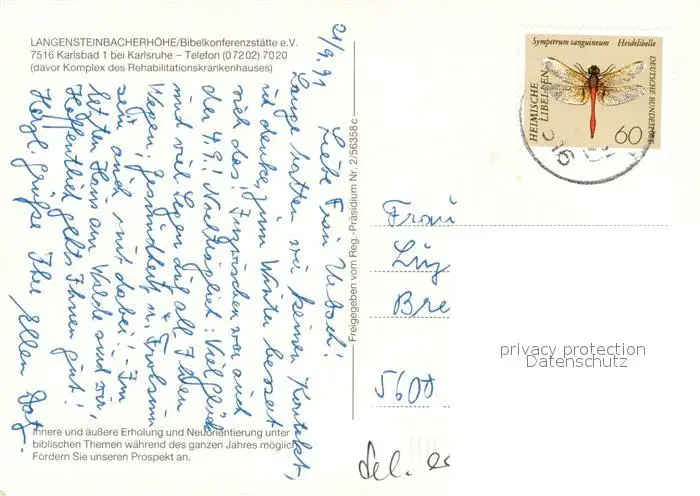 LANGENSTEINBACHERHÖHE/Bibelkonferenzstätte e.V.
7516 Karlsbad 1 bei Karlsruhe – Telefon (07202) 7020
(davor Komplex des Rehabilitationskrankenhauses)
21/9.91
Liebe Frau
Lange hatten wir keinen Kontakt,
ich denke, zum Winter bessert
sich das! Inzwischen war auch
der 4.9.! Nachträglich: Viel Glück
und viel Segen auf all Ihren
Wegen, Gesundheit u. Frohsinn
sei auch mit dabei! - Im
letzten Haus am Walde sind wir,
Hoffentlich geht's Ihnen gut!
Herzl. Grüße Ihre Ellen
Innere und äußere Erholung und Neuorientierung unter
biblischen Themen während des ganzen Jahres möglich
Fordern Sie unseren Prospekt an.
Freigegeben vom Reg.-Präsidium Nr. 2/56358 c
Sympetrum sanguineum Heidelibelle
HEIMISCHE
LIBELLEN
DEUTSCHE BUNDESPOST
60
Frau
Bre
5600
privacy protection
Datenschutz